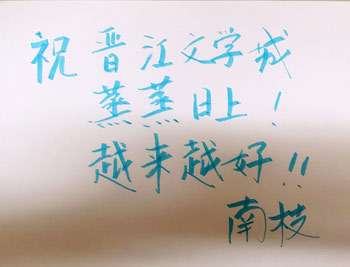 祝晋江文学城
蒸蒸日上！
越来越好！！
南枝